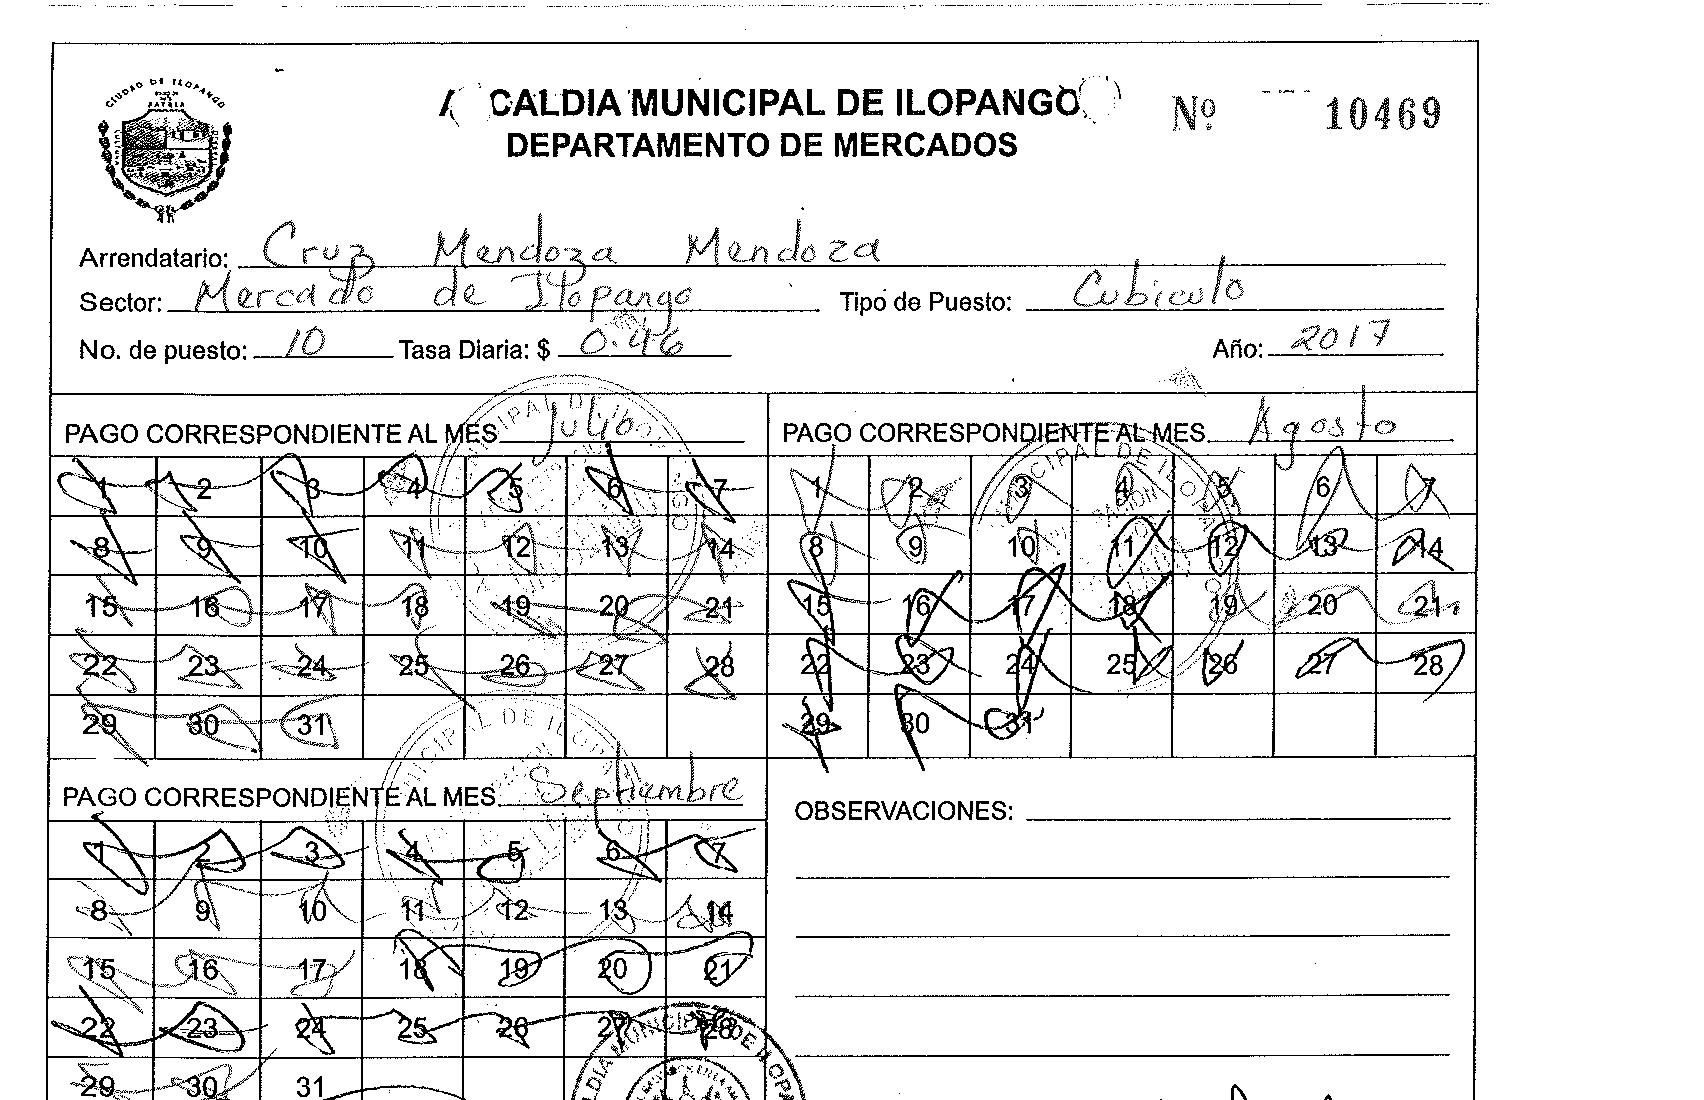 CIUDAD DE ILOPANGO
ALCALDIA MUNICIPAL DE ILOPANGO
Nº 10469
DEPARTAMENTO DE MERCADOS
Arrendatario: Cruz Mendoza Mendoza
Sector: Mercado de Ilopango Tipo de Puesto: Cubiculo
No. de puesto: 10 Tasa Diaria: $ 0.46 Año: 2017
PAGO CORRESPONDIENTE AL MES Julio
1 2 3 4 5 6 7
8 9 10 11 12 13 14
15 16 17 18 19 20 21
22 23 24 25 26 27 28
29 30 31
PAGO CORRESPONDIENTE AL MES. Agosto
1 2 3 4 5 6 7
8 9 10 11 12 13 14
15 16 17 18 19 20 21
22 23 24 25 26 27 28
29 30 31
PAGO CORRESPONDIENTE AL MES. Septiembre
1 2 3 4 5 6 7
8 9 10 11 12 13 14
15 16 17 18 19 20 21
22 23 24 25 26 27 28
29 30 31
OBSERVACIONES: